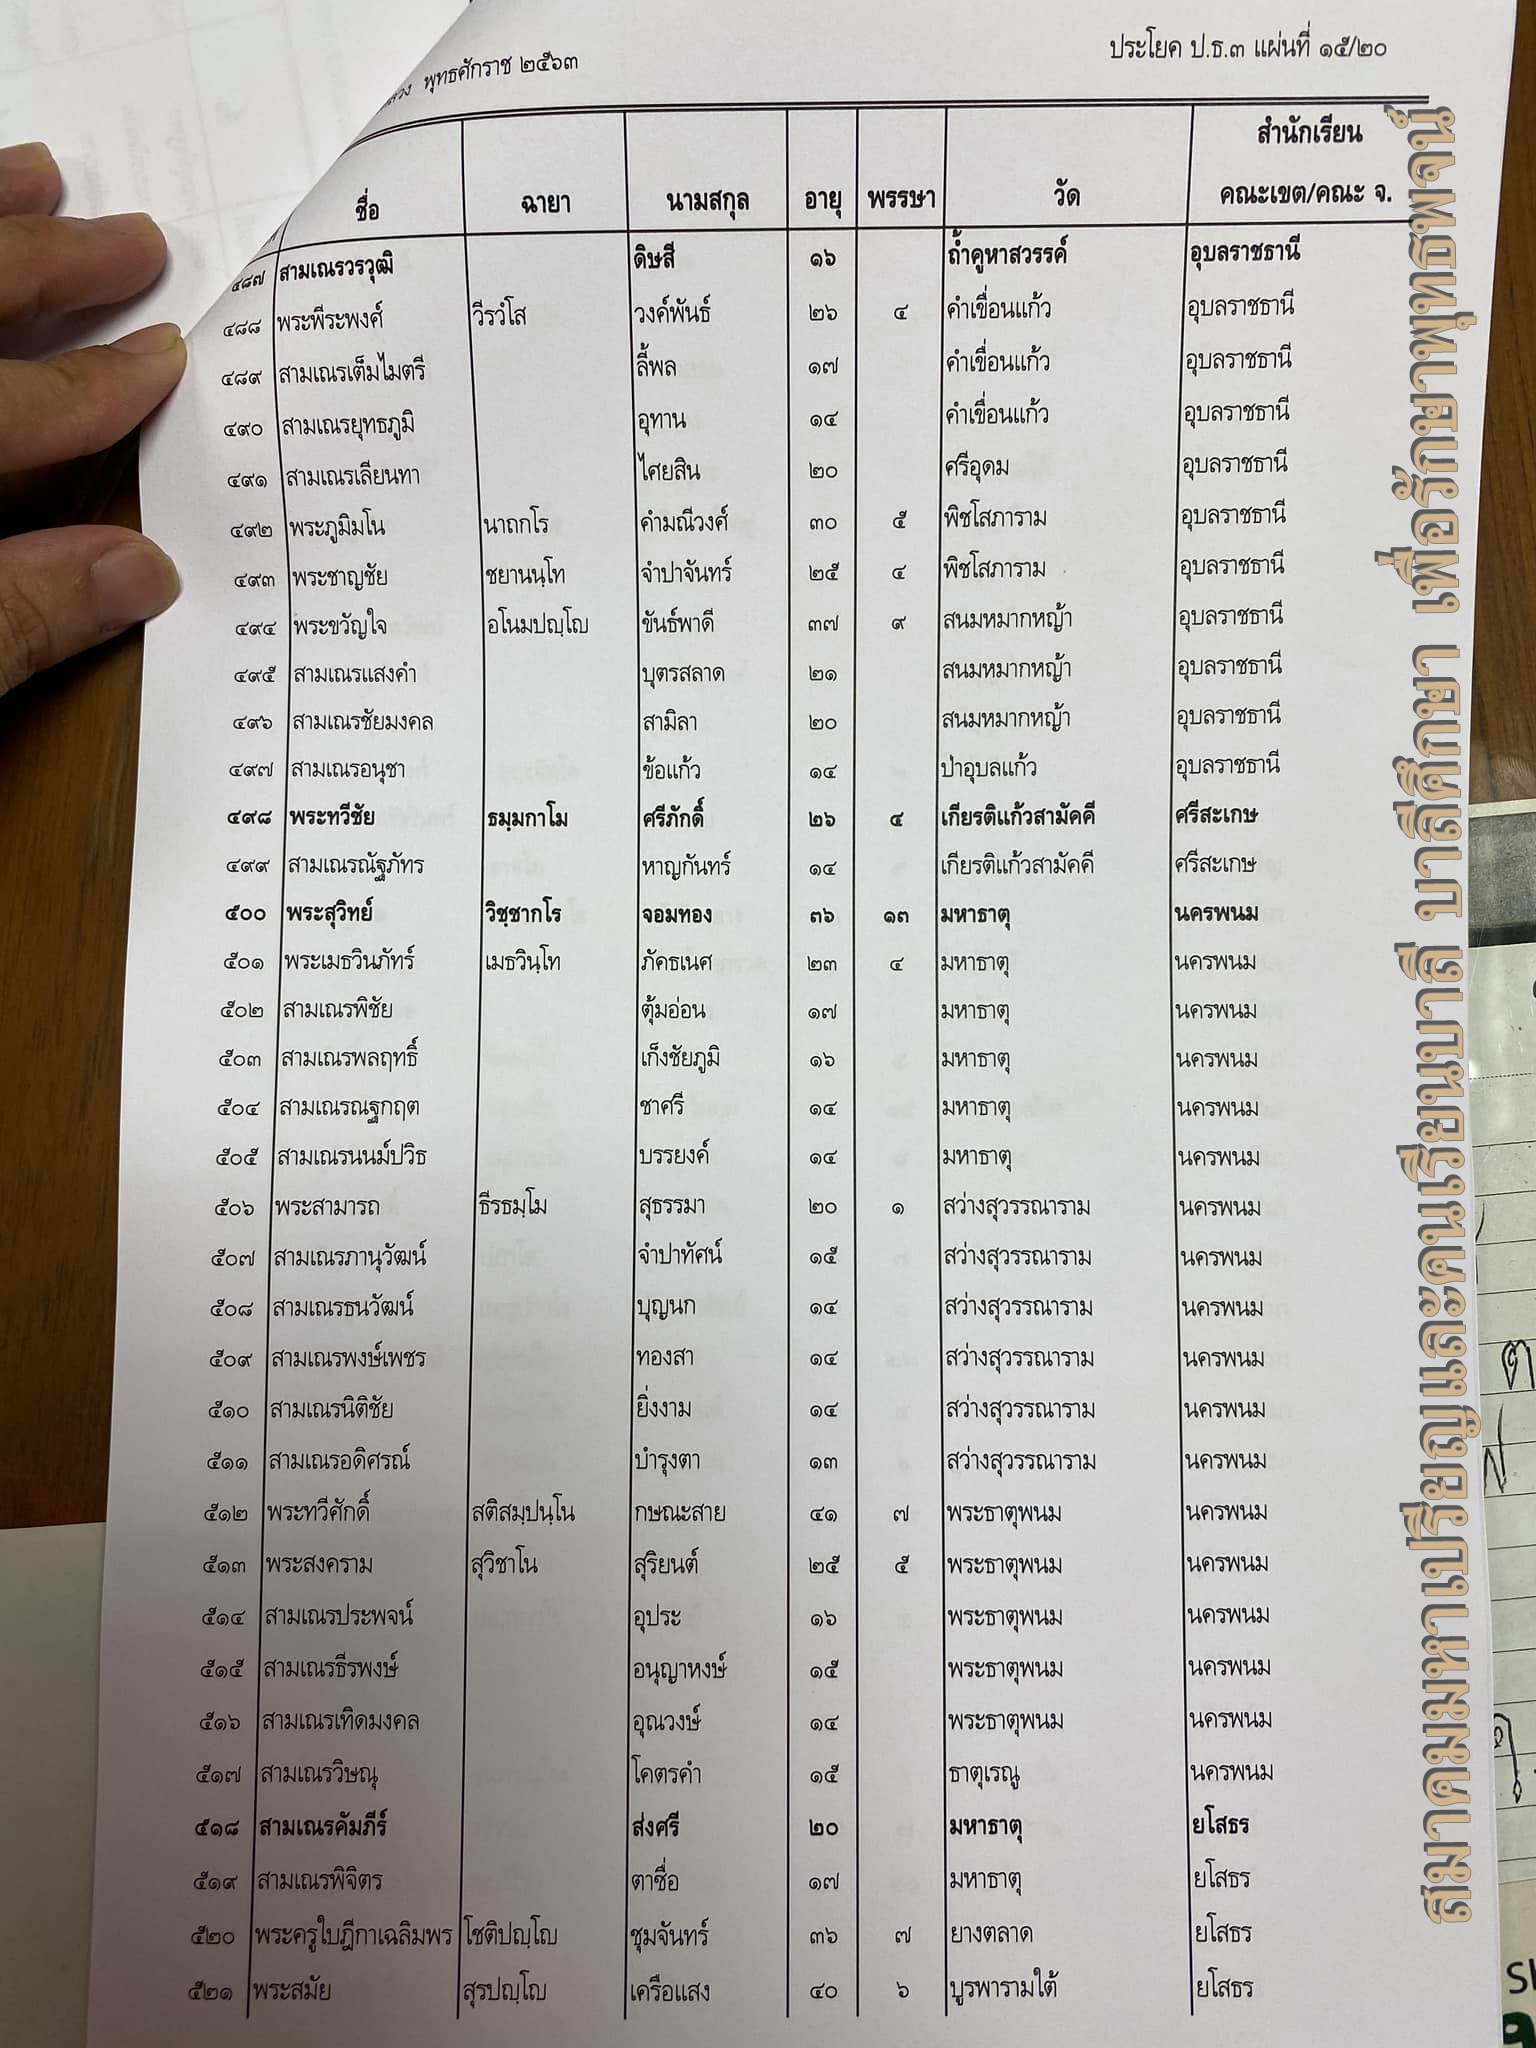 พุทธศักราช ๒๕๖๓
ประโยค ป.ธ.๓ แผ่นที่ ๑๕/๒๐
ชื่อ ฉายา นามสกุล อายุ พรรษา วัด สำนักเรียน
คณะเขต/คณะ จ.
๔๘๗ สามเณรวรวุฒิ ดิษสี ๑๖ ถ้ำคูหาสวรรค์ อุบลราชธานี
๔๘๘ พระพีระพงศ์ วีรวํโส วงค์พันธ์ ๒๖ ๔ คำเขื่อนแก้ว อุบลราชธานี
๔๘๙ สามเณรเต็มไมตรี ลี้พล ๑๗ คำเขื่อนแก้ว อุบลราชธานี
๔๙๐ สามเณรยุทธภูมิ อุทาน ๑๔ คำเขื่อนแก้ว อุบลราชธานี
๔๙๑ สามเณรเลียนทา ไศยสิน ๒๐ ศรีอุดม อุบลราชธานี
๔๙๒ พระภูมิมโน นาถกโร คำมณีวงศ์ ๓๐ ๕ พิชโสภาราม อุบลราชธานี
๔๙๓ พระชาญชัย ชยานนฺโท จำปาจันทร์ ๒๕ ๔ พิชโสภาราม อุบลราชธานี
๔๙๔ พระขวัญใจ อโนมปญฺโญ ขันธ์พาดี ๓๗ ๙ สนมหมากหญ้า อุบลราชธานี
๔๙๕ สามเณรแสงคำ บุตรสลาด ๒๑ สนมหมากหญ้า อุบลราชธานี
๔๙๖ สามเณรชัยมงคล สามิลา ๒๐ สนมหมากหญ้า อุบลราชธานี
๔๙๗ สามเณรอนุชา ข้อแก้ว ๑๔ ป่าอุบลแก้ว อุบลราชธานี
๔๙๘ พระทวีชัย ธมฺมกาโม ศรีภักดิ์ ๒๖ ๔ เกียรติแก้วสามัคคี ศรีสะเกษ
๔๙๙ สามเณรณัฐภัทร หาญกันทร์ ๑๔ เกียรติแก้วสามัคคี ศรีสะเกษ
๕๐๐ พระสุวิทย์ วิชฺชากโร จอมทอง ๓๖ ๑๓ มหาธาตุ นครพนม
๕๐๑ พระเมธวินภัทร์ เมธวินฺโท ภัคธเนศ ๒๓ ๔ มหาธาตุ นครพนม
๕๐๒ สามเณรพิชัย ตุ้มอ่อน ๑๗ มหาธาตุ นครพนม
๕๐๓ สามเณรพลฤทธิ์ เก็งชัยภูมิ ๑๖ มหาธาตุ นครพนม
๕๐๔ สามเณรณฐกฤต ชาศรี ๑๔ มหาธาตุ นครพนม
๕๐๕ สามเณรนนม์ปวิธ บรรยงค์ ๑๔ มหาธาตุ นครพนม
๕๐๖ พระสามารถ ธีรธมฺโม สุธรรมา ๒๐ ๑ สว่างสุวรรณาราม นครพนม
๕๐๗ สามเณรภานุวัฒน์ จำปาทัศน์ ๑๕ สว่างสุวรรณาราม นครพนม
๕๐๘ สามเณรธนวัฒน์ บุญนก ๑๔ สว่างสุวรรณาราม นครพนม
๕๐๙ สามเณรพงษ์เพชร ทองสา ๑๔ สว่างสุวรรณาราม นครพนม
๕๑๐ สามเณรนิติชัย ยิ่งงาม ๑๔ สว่างสุวรรณาราม นครพนม
๕๑๑ สามเณรอดิศรณ์ บำรุงตา ๑๓ สว่างสุวรรณาราม นครพนม
๕๑๒ พระทวีศักดิ์ สติสมฺปนฺโน กษณะสาย ๔๑ ๗ พระธาตุพนม นครพนม
๕๑๓ พระสงคราม สุวิชาโน สุริยนต์ ๒๕ ๕ พระธาตุพนม นครพนม
๕๑๔ สามเณรประพจน์ อุประ ๑๖ พระธาตุพนม นครพนม
๕๑๕ สามเณรธีรพงษ์ อนุญาหงษ์ ๑๕ พระธาตุพนม นครพนม
๕๑๖ สามเณรเทิดมงคล อุณวงษ์ ๑๔ พระธาตุพนม นครพนม
๕๑๗ สามเณรวิษณุ โคตรคำ ๑๕ ธาตุเรณู นครพนม
๕๑๘ สามเณรคัมภีร์ ส่งศรี ๒๐ มหาธาตุ ยโสธร
๕๑๙ สามเณรพิจิตร ตาชื่อ ๑๗ มหาธาตุ ยโสธร
๕๒๐ พระครูใบฎีกาเฉลิมพร โชติปญฺโญ ชุมจันทร์ ๓๖ ๗ ยางตลาด ยโสธร
๕๒๑ พระสมัย สุรปญฺโญ เครือแสง ๔๐ ๖ บูรพารามใต้ ยโสธร
สมาคมมหาเปรียญและคนเรียนบาลี บาลีศึกษา เพื่อรักษาพุทธพจน์